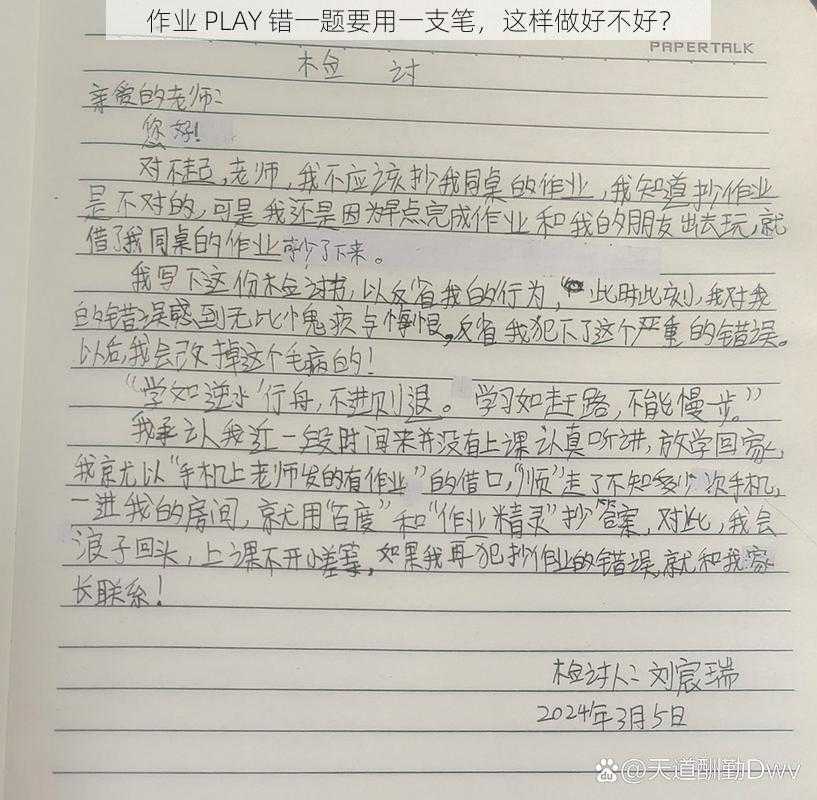 作业 PLAY 错一题要用一支笔，这样做好不好？
PAPERTALK
检 讨
亲爱的老师：
您好！
对不起，老师，我不应该抄我同桌的作业，我知道抄作业
是不对的，可是我还是因为早点完成作业和我的朋友出去玩，就
借了我同桌的作业抄了下来。
我写下这份检讨书，以反省我的行为，此时此刻，我对我
的错误感到无比愧疚与悔恨，反省我犯下了这个严重的错误。
以后我会改掉这个毛病的！
“学如逆水行舟，不进则退。学习如赶路，不能慢一步。”
我承认我近一段时间来并没有上课认真听讲，放学回家，
我就以“手机上老师发的有作业”的借口，“顺”走了不知多少次手机，
一进我的房间，就用“百度”和“作业精灵”抄答案，对此，我会
浪子回头，上课不开小差等，如果我再犯抄作业的错误，就和我家
长联系！
检讨人：刘宸瑞
2024年3月5日
@天道酬勤Dwv